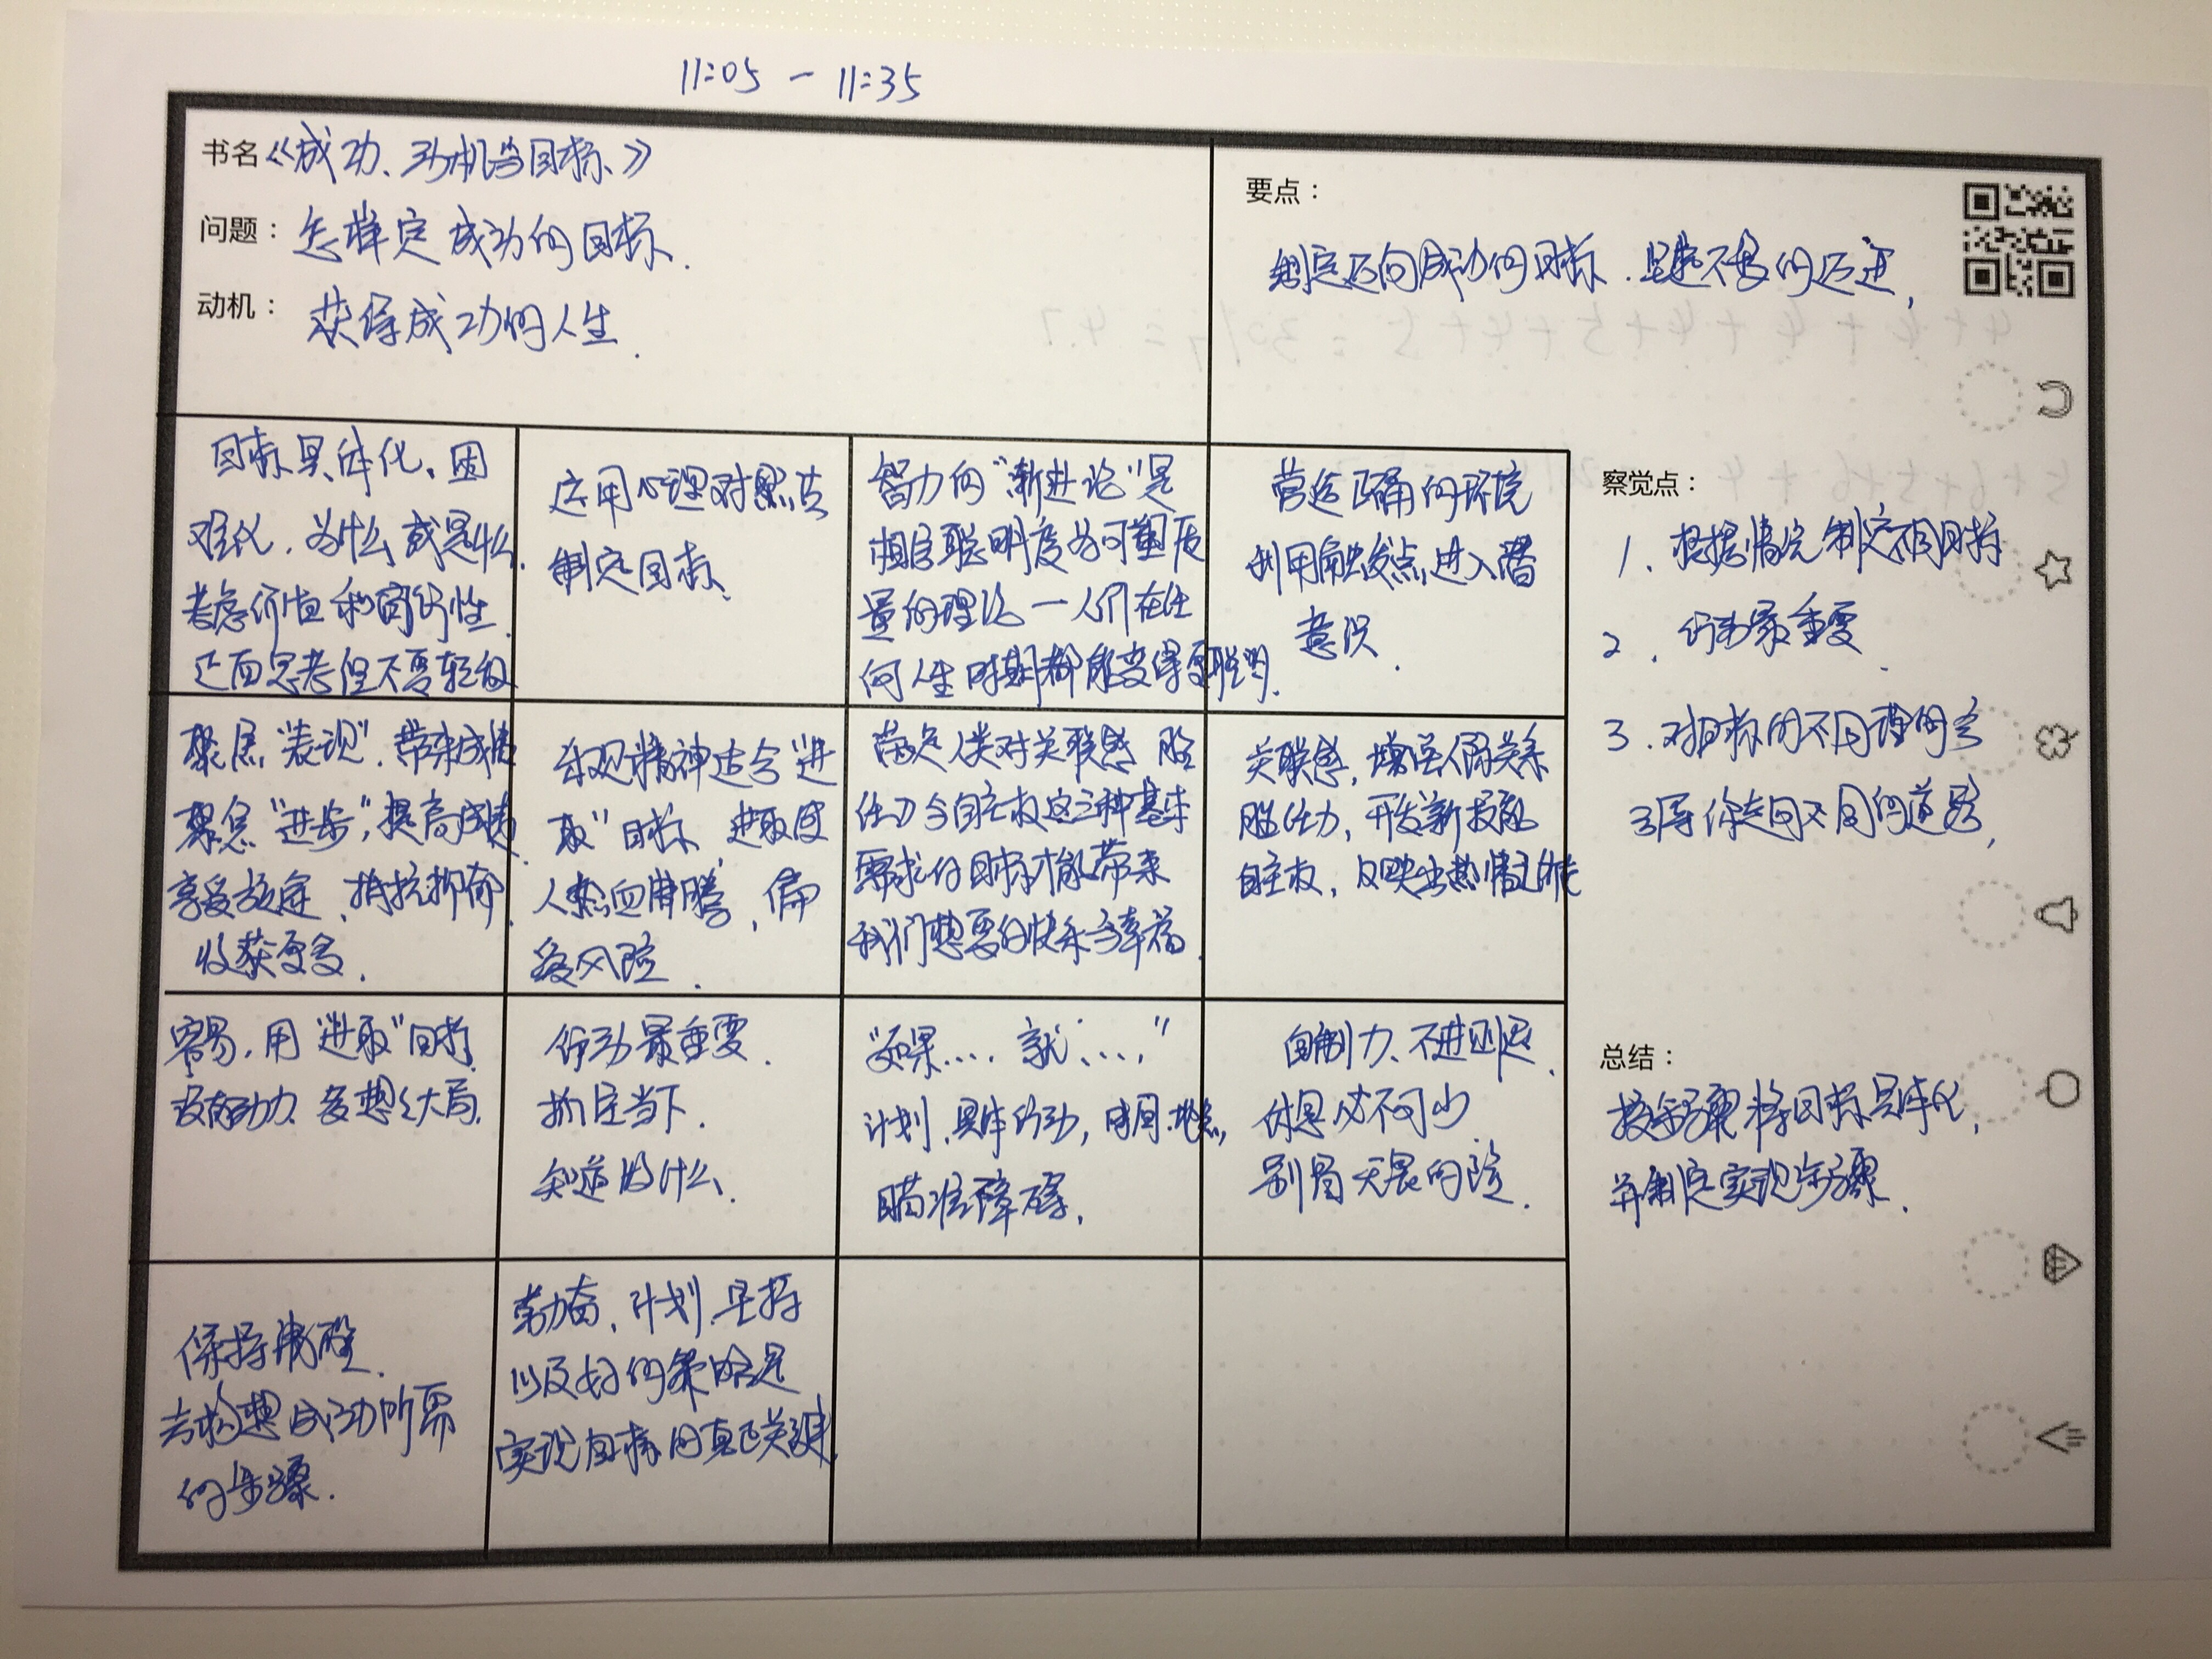 11:05 - 11:35
书名《成功、动机与目标》
问题：怎样定成功的目标.
动机：获得成功的人生.
要点：
制定迈向成功的目标.坚持不懈的迈进,
目标具体化、困
难化,为什么或是什么.
考虑价值和可行性.
正面思考但不要轻敌
运用心理对照去
制定目标.
智力的"渐进论"是
相信聪明度为可塑质
量的理论一人们在任
何人生时期都能变得更聪明.
营造正确的环境
利用触发点,进入潜
意识.
聚焦"表现".带来成绩
聚焦"进步",提高成绩.
享受旅途、抵抗抑郁.
收获更多.
乐观精神适合"进
取"目标,进取使
人热血沸腾,偏
爱风险.
满足人类对关联感 胜
任力与自主权这三种基本
需求的目标才能带来
我们想要的快乐与幸福.
关联感,增强人际关系
胜任力,开发新技能
自主权,反映出热情
容易,用"进取"目标.
没有动力、多想想大局.
行动最重要.
抓住当下.
知道做什么.
"如果.... 就....,"
计划.具体行动,时间.地点,
瞄准障碍.
自制力、不进则退.
休息必不可少.
别冒无畏的险.
保持清醒.
去构想成功所需
的步骤.
勤奋、计划.坚持
以及好的策略是
实现目标的真正关键.
察觉点：
1、根据情况制定不同目标
2、行动最重要.
3.对目标的不同理解会
引导你走向不同的道路,
总结：
按步骤将目标具体化,
并制定实现步骤.